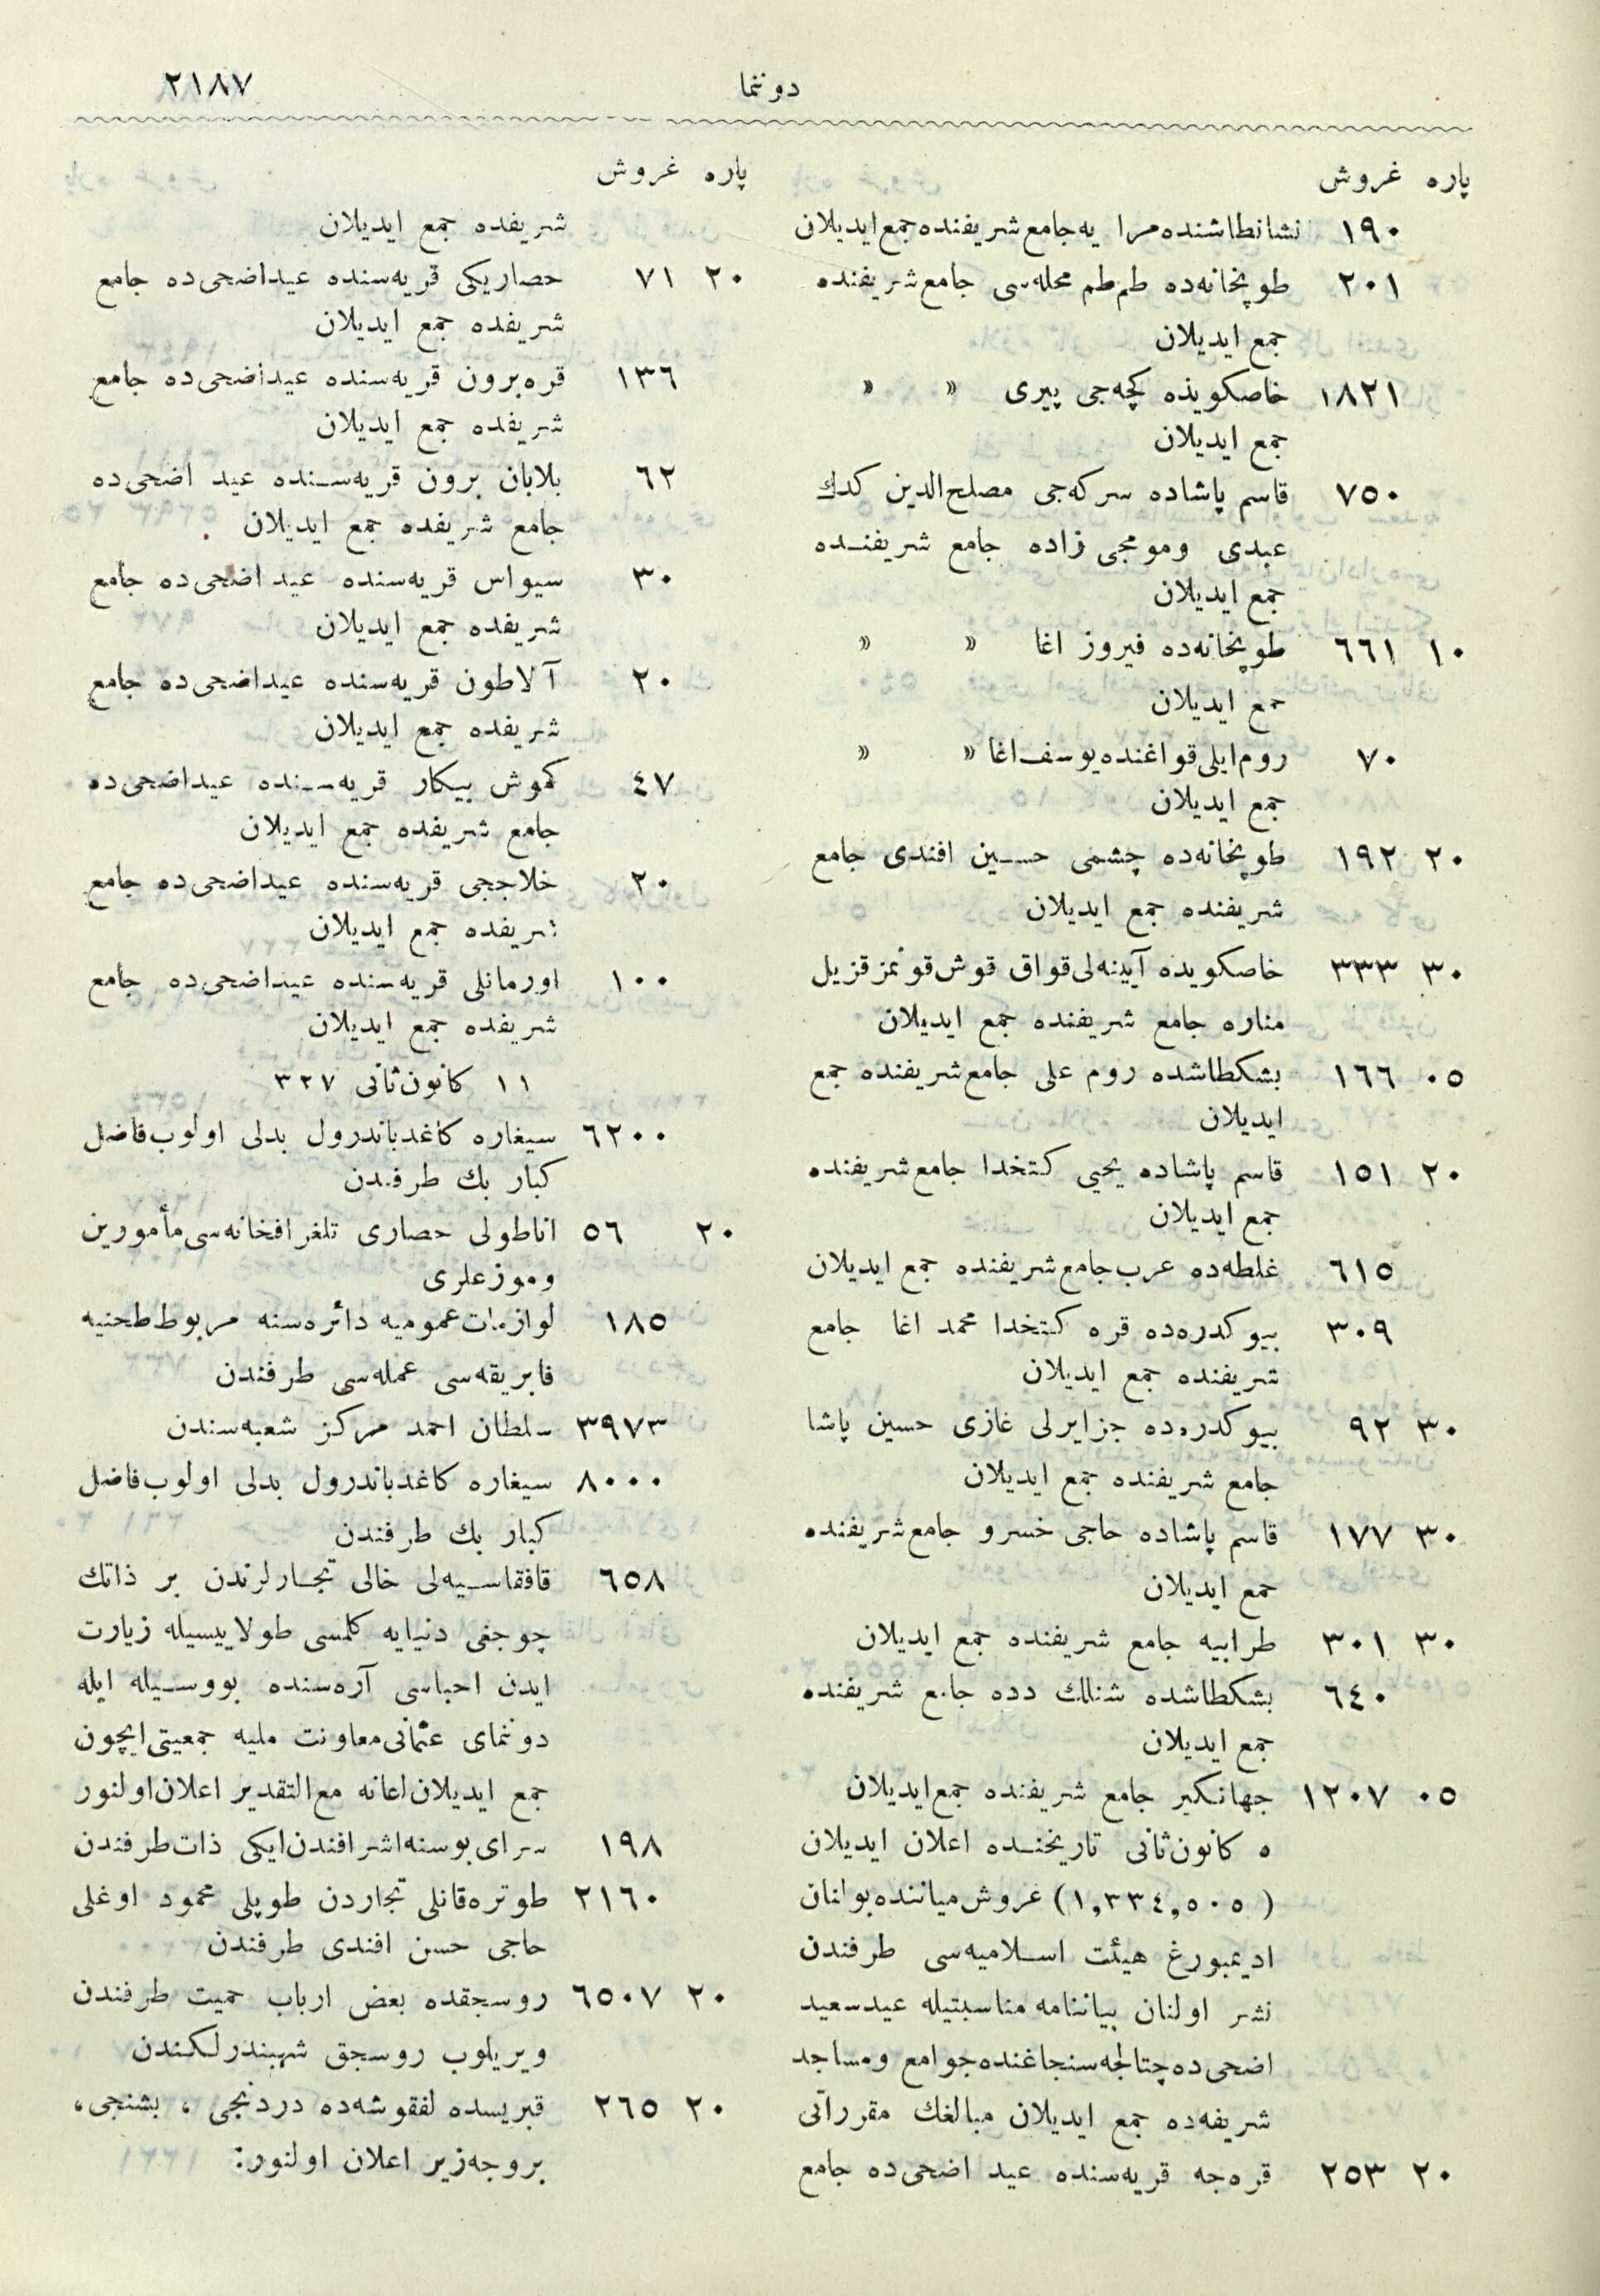 ٢١٨٧
دوننما
پاره غروش
١٩٠ نشانطاشنده مرا یه جامع شریفنده جمع ایدیلان
٢٠١ طوپخانه‌ده طم‌طم محله‌سی جامع شریفنده
جمع ایدیلان
١٨٢١ خاصکویده کچه‌جی پیری » »
جمع ایدیلان
٧٥٠ قاسم پاشاده سرکه‌جی مصلح‌الدین كدك
عبدی ومومجی زاده جامع شریفنده
جمع ایدیلان
١٠ ٦٦١ طوپخانه‌ده فیروز اغا » »
جمع ایدیلان
٧٠ روم‌ایلی قواغنده یوسف اغا » »
جمع ایدیلان
٢٠ ١٩٢ طوپخانه‌ده چشمی حسین افندی جامع
شریفنده جمع ایدیلان
٣٠ ٣٣٣ خاصکویده آیینه‌لی قواق قوش قونمز قزیل
مناره جامع شریفنده جمع ایدیلان
٠٥ ١٦٦ بشکطاشده روم علی جامع شریفنده جمع
ایدیلان
٢٠ ١٥١ قاسم پاشاده یحیی کتخدا جامع شریفنده
جمع ایدیلان
٦١٥ غلطه‌ده عرب جامع شریفنده جمع ایدیلان
٣٠٩ بیوکدره‌ده قره کتخدا محمد اغا جامع
شریفنده جمع ایدیلان
٣٠ ٩٢ بیوکدره‌ده جزایرلی غازی حسین پاشا
جامع شریفنده جمع ایدیلان
٣٠ ١٧٧ قاسم پاشاده حاجی خسرو جامع شریفنده
جمع ایدیلان
٣٠ ٣٠١ طرابیه جامع شریفنده جمع ایدیلان
٦٤٠ بشکطاشده شنلك دده جامع شریفنده
جمع ایدیلان
٠٥ ١٢٠٧ جهانگیر جامع شریفنده جمع ایدیلان
٥ کانون ثانی تاریخنده اعلان ایدیلان
(١,٣٣٤,٥٠٥) غروش میاننده بوانان
ادیمبورغ هیئت اسلامیه‌سی طرفندن
نشر اولنان بیاننامه مناسبتیله عید سعید
اضحی‌ده چتالجه سنجاغنده جوامع ومساجد
شریفه‌ده جمع ایدیلان مبالغك مقرراتی
٢٠ ٢٥٣ قره‌جه قریه‌سنده عید اضحی‌ده جامع
پاره غروش
شریفده جمع ایدیلان
٢٠ ٧١ حصاربكی قریه‌سنده عیداضحی‌ده جامع
شریفده جمع ایدیلان
١٣٦ قره‌برون قریه‌سنده عیداضحی‌ده جامع
شریفده جمع ایدیلان
٦٢ بلابان برون قریه‌سنده عید اضحی‌ده
جامع شریفده جمع ایدیلان
٣٠ سیواس قریه‌سنده عید اضحی‌ده جامع
شریفده جمع ایدیلان
٢٠ آلاطون قریه‌سنده عیداضحی‌ده جامع
شریفده جمع ایدیلان
٤٧ کموش بیکار قریه‌سنده عیداضحی‌ده
جامع شریفده جمع ایدیلان
٢٠ خلاججی قریه‌سنده عیداضحی‌ده جامع
شریفده جمع ایدیلان
١٠٠ اورمانلی قریه‌سنده عیداضحی‌ده جامع
شریفده جمع ایدیلان
١١ کانون ثانی ٣٢٧
٦٢٠٠ سیغاره کاغد باندرول بدلی اولوب فاضل
کبار بك طرفدن
٢٠ ٥٦ اناطولی حصاری تلغرافخانه‌سی مأمورین
وموزعلری
١٨٥ لوازمات عمومیه دائره‌سنه مربوط طحنیه
فابریقه‌سی عمله‌سی طرفندن
٣٩٧٣ سلطان احمد مرکز شعبه‌سندن
٨٠٠٠ سیغاره کاغد باندرول بدلی اولوب فاضل
کبار بك طرفندن
٦٥٨ قافقاسیه‌لی خالی تجارلرندن بر ذاتك
چوجغی دنیایه کلمسی طولاییسیله زیارت
ایدن احباسی آره‌سنده بووسیله ایله
دوننمای عثمانی معاونت ملیه جمعیتی ایچون
جمع ایدیلان اعانه مع‌التقدیر اعلان اولنور
١٩٨ سرای بوسنه اشرافندن ایکی ذات طرفندن
٢١٦٠ طوتره‌قانلی تجاردن طوپلی محمود اوغلی
حاجی حسن افندی طرفندن
٢٠ ٦٥٠٧ روسجقده بعض ارباب حمیت طرفندن
ویریلوب روسجق شهبندرلكندن
٢٠ ٢٦٥ قبریسده لفقوشه‌ده دردنجی ، بشنجی،
بروجه زیر اعلان اولنور: